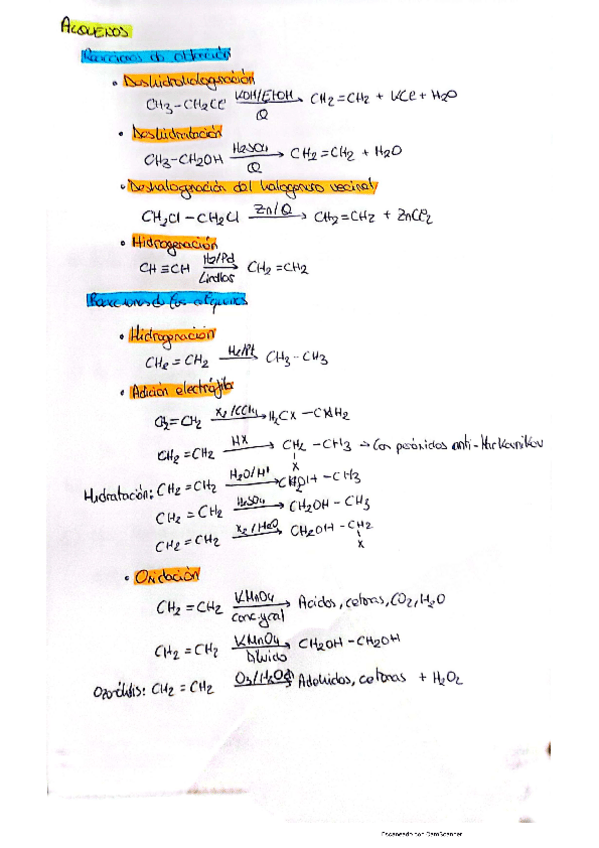 ALQUENOS
Reacciones de obtención
• Deshidrohalogenación
CH3-CH2Cl KOH/EtOH Q → CH2=CH2 + KCl + H2O
• Deshidratación
CH3-CH2OH H2SO4 Q → CH2=CH2 + H2O
• Deshalogenación del halogenuro vecinal
CH2Cl-CH2Cl Zn/Q → CH2=CH2 + ZnCl2
• Hidrogenación
CH≡CH H2/Pd Lindlar → CH2=CH2
Reacciones de los alquenos
• Hidrogenación
CH2=CH2 H2/Pt → CH3-CH3
• Adición electrófila
CH2=CH2 X2/CCl4 → H2CX-
CH2=CH2 HX → CH2-CH3 → Con peróxidos anti-Markovnikov
X
Hidratación: CH2=CH2 H2O/H+ → -CH3
CH2=CH2 H2SO4 → CH2OH-CH3
CH2=CH2 X2/H2O → CH2OH-CH2
X
• Oxidación
CH2=CH2 KMnO4 conc y cal → Acidos, cetonas, CO2, H2O
CH2=CH2 KMnO4 Diluido → CH2OH-CH2OH
Ozonólisis: CH2=CH2 O3/ → Aldehidos, cetonas + H2O2
Escaneado con CamScanner